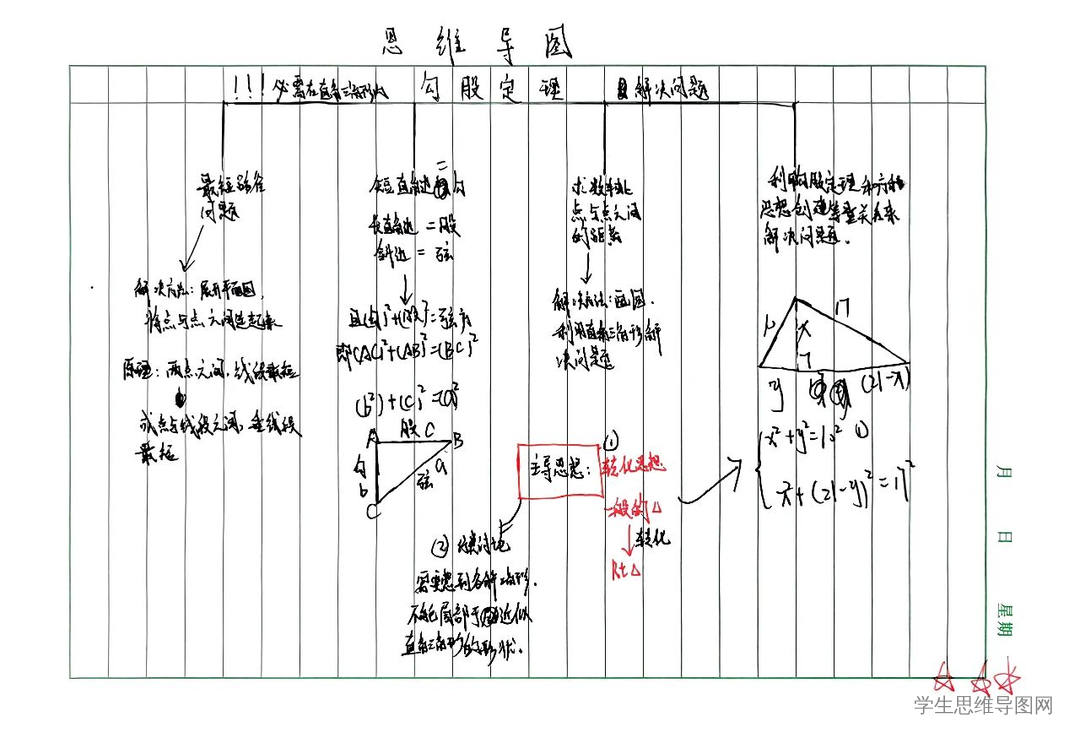 思维导图
!!! 必需在直角三角形内 勾股定理 解决问题
最短路径
问题
解决方法：展开平面图，
将点与点之间连起来
原理：两点之间，线段最短
或点与线段之间，垂线段
最短
短直角边 = 勾
长直角边 = 股
斜边 = 弦
且(勾)²+(股)²=弦²
即(AC)²+(AB)²=(BC)²
(b²)+(c)²=(a)²
股 c
A B
勾 b
弦 a
C
求数轴上
点与点之间
的距离
解决方法：画图，
利用直角三角形解
决问题
利用勾股定理和方程
思想创建等量关系来
解决问题．
17
x
y (21-x)
x²+y²=10² ①
x²+(21-y)²=17²
主导思想：
①
转化思想
一般的△
转化
Rt△
②
需要想到各种三角形，
不能局部于近似
直角三角形的形状．
月
日
星期
学生思维导图网